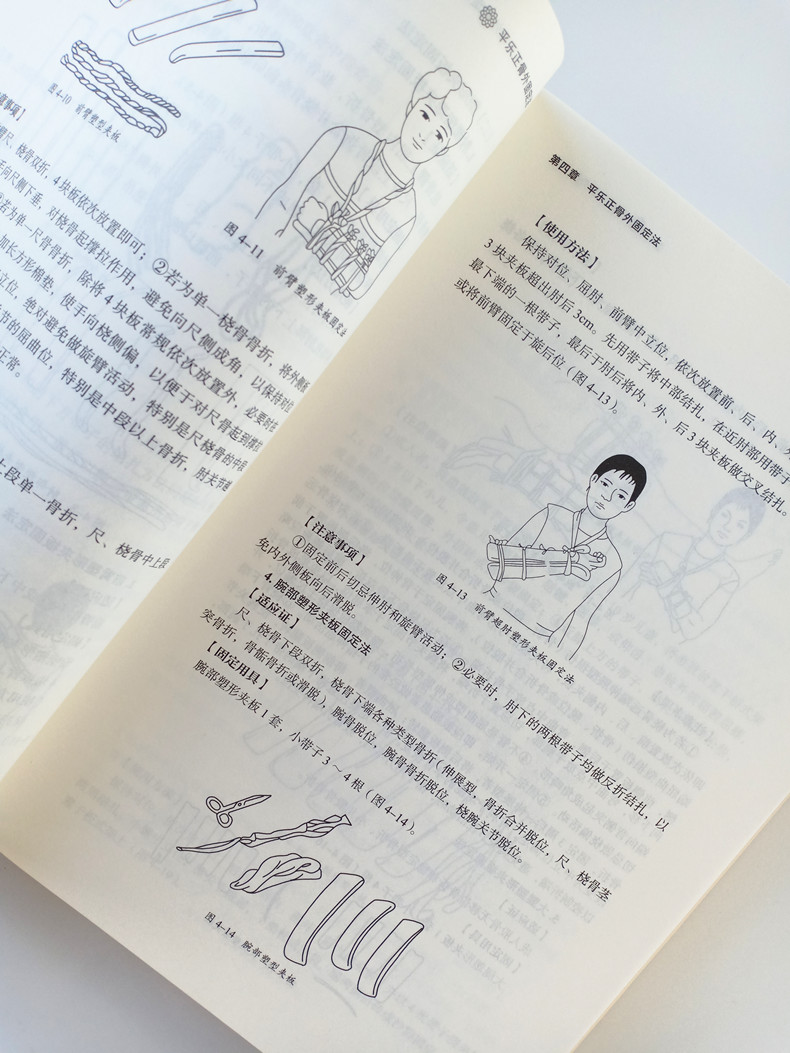 平乐正骨外固定
图4-10 前臂塑型夹板
意事项】
桡骨双折，4块板依次放置即可；②若为单一桡骨骨折，将外侧
手向尺侧下垂，对桡骨起撑拉作用，避免向尺侧成角，以保持对位
若为单一尺骨骨折，除将4块板常规依次放置外，必要时在
加长方形棉垫，使手向桡侧偏，以便于对尺骨起到撑
立位，绝对避免做旋臂活动，特别是尺桡骨的中段
节的屈曲位，特别是中段以上骨折，肘关节
正常。
上段单一骨折，尺、桡骨中上段
图4-11 前臂塑形夹板固定法
第四章 平乐正骨外固定法
【使用方法】
保持对位、屈肘、前臂中立位，依次放置前、后、内、外
3块夹板超出肘后3cm。先用带子将中部结扎，在近肘部用带子
最下端的一根带子，最后于肘后将内、外、后3块夹板做交叉结扎。
或将前臂固定于旋后位（图4-13）。
图4-13 前臂超肘塑形夹板固定法
【注意事项】
①固定前后切忌伸肘和旋臂活动；②必要时，肘下的两根带子均做反折结扎，以
免内外侧板向后滑脱。
4. 腕部塑形夹板固定法
【适应证】
尺、桡骨下段双折，桡骨下端各种类型骨折（伸展型，骨折合并脱位，尺、桡骨茎
突骨折，骨骺骨折或滑脱），腕骨脱位，腕骨骨折脱位，桡腕关节脱位。
【固定用具】
腕部塑形夹板1套，小带子3～4根（图4-14）。
图4-14 腕部塑型夹板